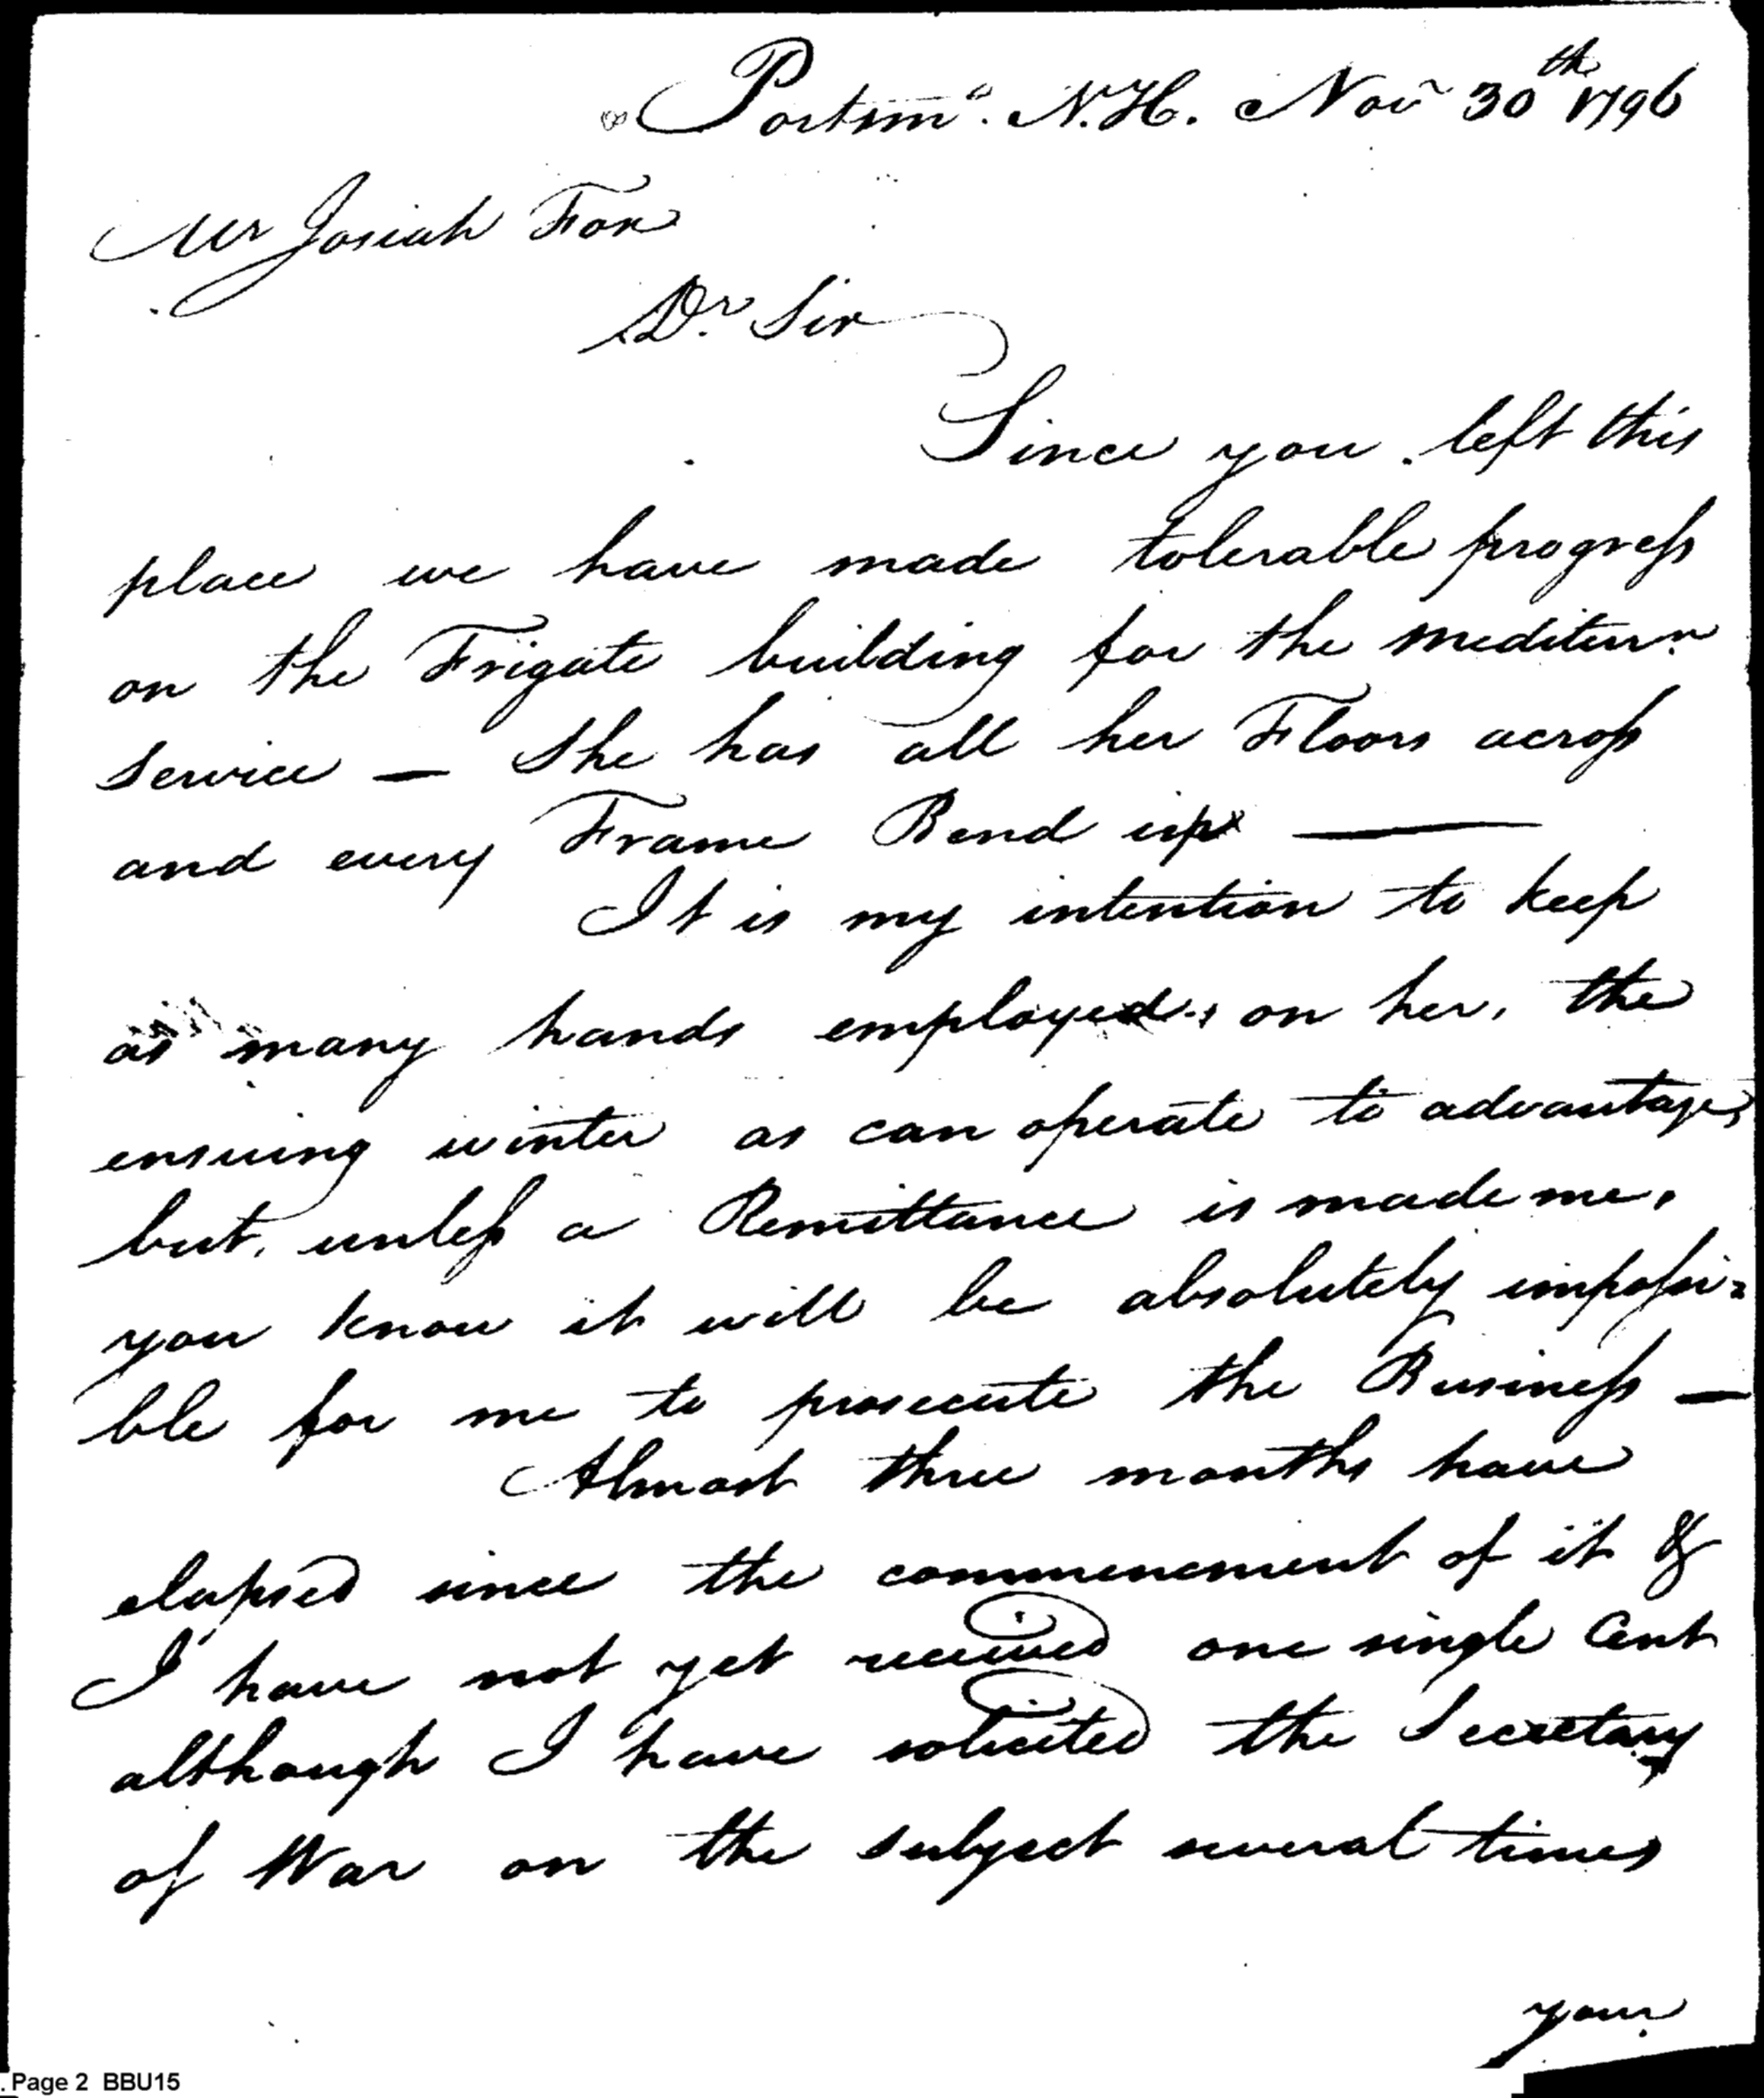 Portsmo. N.H. Nov 30th 1796
Mr Josiah Fox
Dr. Sir
Since you left this
place we have made tolerable progress
on the Frigate building for the mediterrn
Service — She has all her Floors across
and every Frame Bend up —
It is my intention to keep
as many hands employed, on her, the
ensuing winter as can operate to advantage,
but, unless a Remittance is made me,
you know it will be absolutely impossi=
ble for me to prosecute the Business —
Almost three months have
elapsed since the commencement of it &
I have not yet received one single Cent
although I have solicited the Secretary
of War on the subject several times
your
Page 2 BBU15